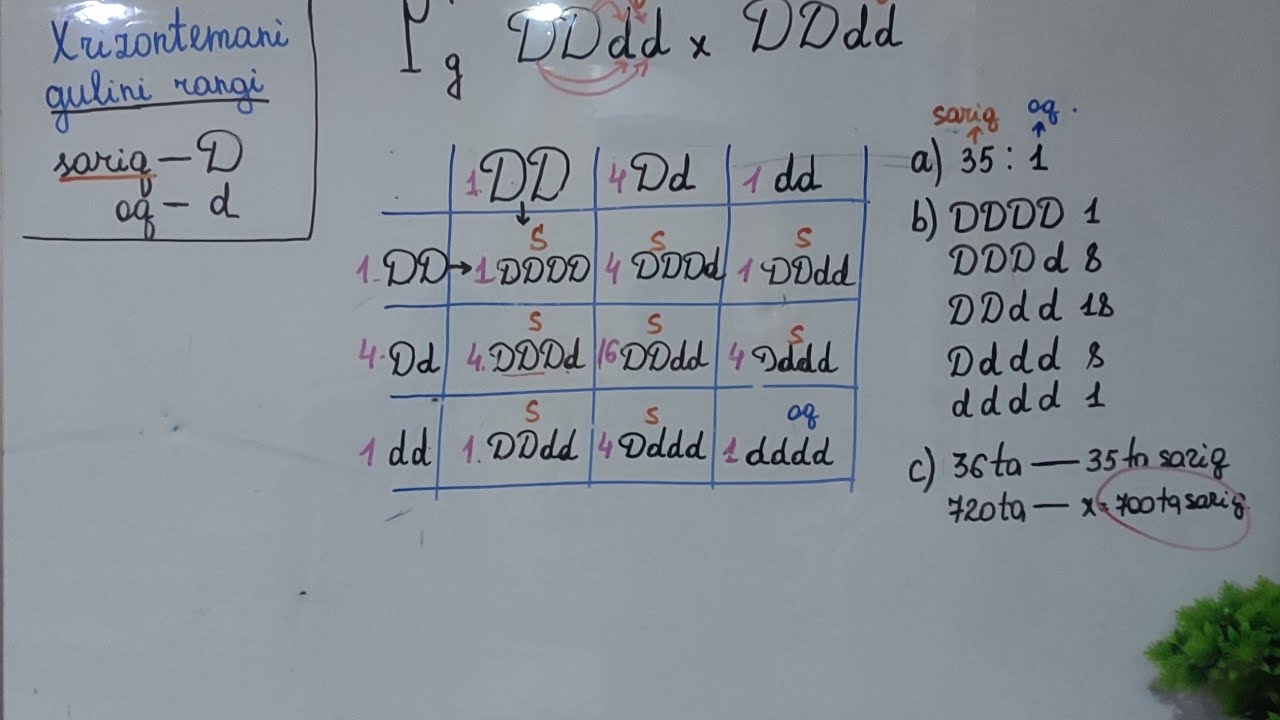 Xrizontemani
gulini rangi
sariq – D
oq – d
P DDdd x DDdd
g
1. DD 4 Dd 1 dd
S S S
1. DD → 1 DDDD 4 DDDd 1 DDdd
S S S
4. Dd 4. DDDd 16 DDdd 4 Dddd
S S oq
1 dd 1. DDdd 4 Dddd 1 dddd
sariq oq.
a) 35 : 1
b) DDDD 1
DDDd 8
DDdd 18
Dddd 8
dddd 1
c) 36 ta — 35 ta sariq
720 ta — x = 700 ta sariq.